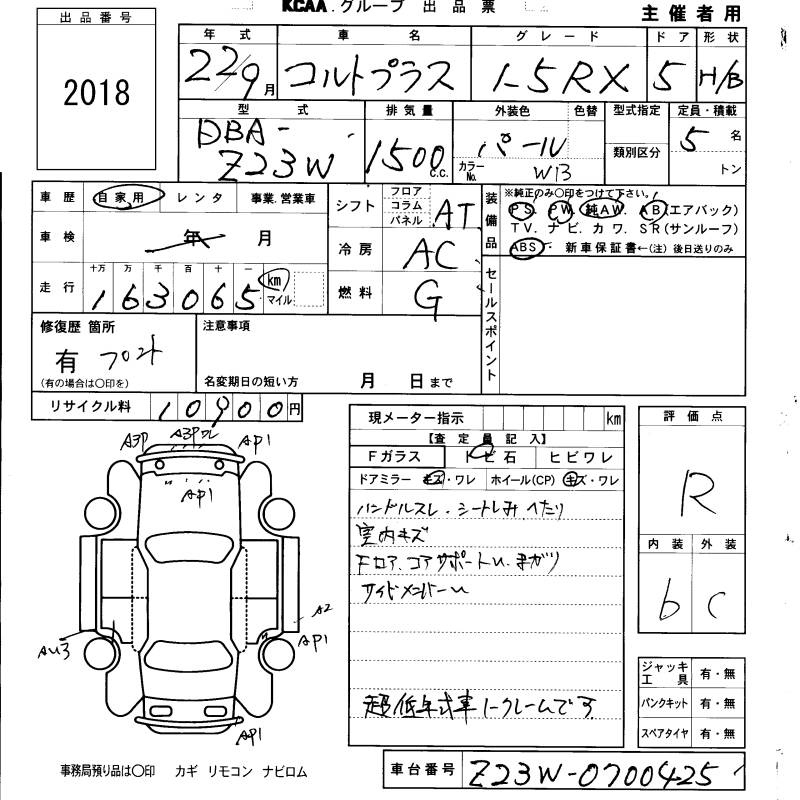 KCAA.グループ 出品票
主催者用
出品番号
2018
年式 車名 グレード ドア 形状
22/9月 コルトプラス 1-5RX 5 H/B
型式 排気量 外装色 色替 型式指定 定員・積載
DBA-
Z23W 1500 C.C. パール 類別区分 5名
カラーNo. W13 トン
車歴 自家用 レンタ 事業.営業車
シフト フロア コラム パネル AT
装備品
※純正のみ〇印をつけて下さい。
PS. PW. 純AW. AB(エアバック)
TV. ナビ. カワ. SR(サンルーフ)
ABS・ 新車保証書←(注)後日送りのみ
車検 年 月
冷房 AC
走行 十万 万 千 百 十 一
163065 km マイル
燃料 G
セールスポイント
修復歴 箇所
有 フロント
(有の場合は〇印を)
注意事項
名変期日の短い方 月 日まで
リサイクル料 10900円
現メーター指示 km
【査定員記入】
Fガラス トビ石 ヒビワレ
ドアミラー キズ・ワレ ホイール(CP) キズ・ワレ
ハンドルスレ.シートしみ.へたり
室内キズ
Fロア.コアサポートU.まがり
サイドメンバーU
超低年式車ノークレームです.
評価点
R
内装 外装
b C
ジャッキ工具 有・無
パンクキット 有・無
スペアタイヤ 有・無
A3P A3Pワレ AP1
AP1
A2
AP1
AU3
AP1
事務局預り品は〇印 カギ リモコン ナビロム
車台番号 Z23W-0700425